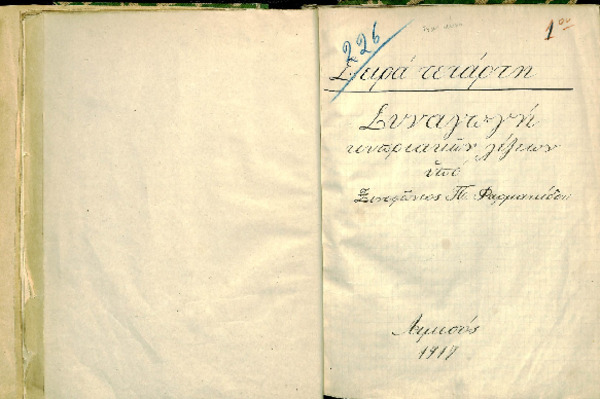 226
1ον
Σειρά τετάρτη
Συναγωγή
κυπριακῶν λέξεων
ὑπό
Ξενοφῶντος Π. Φαρμακίδου
Λεμεσός
1917